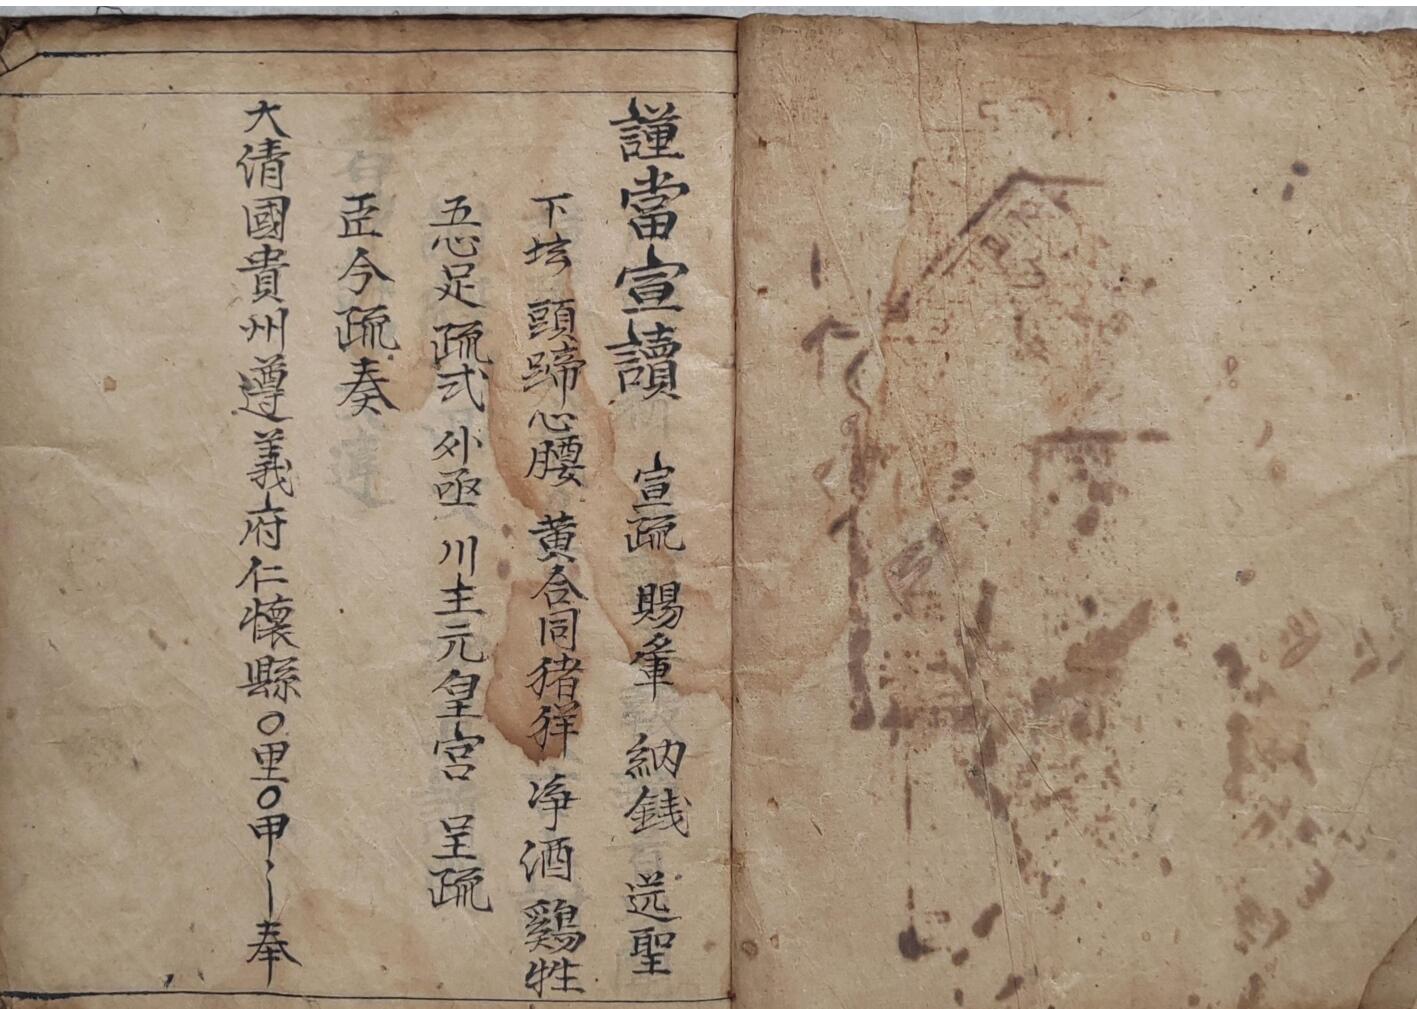 謹當宣讀 宣疏 賜軰 納銭 送聖
下坛 頭蹄心腰 黄合同猪羊 净酒 鷄牲
五心足 疏式 外函 川主元皇宫 呈疏
臣今疏奏
大清國貴州遵義府仁懷縣〇里〇甲〻奉